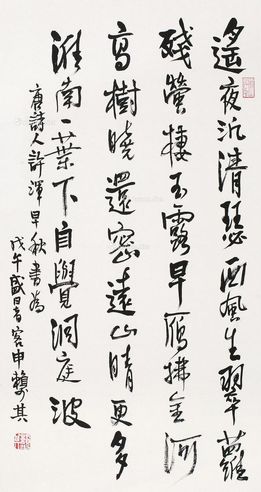 遙夜汎清瑟西風生翠蘿
殘螢棲玉露早鴈拂金河
高樹曉還密遠山晴更多
淮南一葉下自覺洞庭波
唐詩人許渾早秋書為
戊午盛日客申賴少其